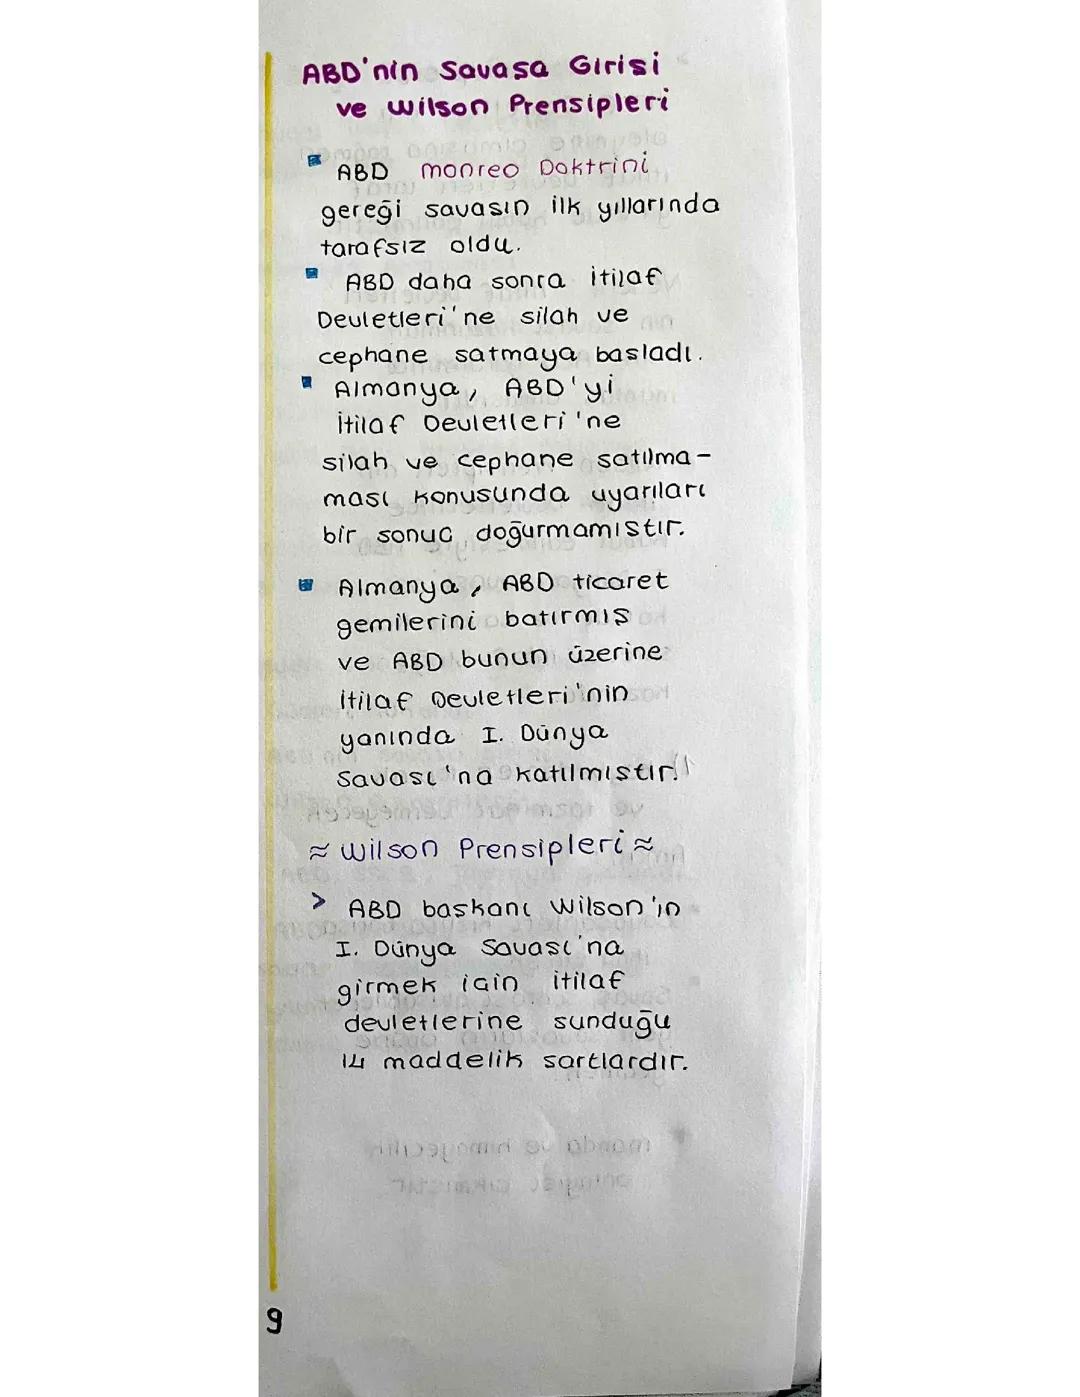 ABD'nin Savasa Girisi
ve Wilson Prensipleri
ABD monreo Doktrini
gereği savasın ilk yıllarında
tarafsız oldu.
ABD daha sonra itilaf
Devletleri'ne silah ve
cephane satmaya basladı.
Almanya, ABD'yi
İtilaf Devletleri'ne
silah ve cephane satılma-
ması konusunda uyarıları
bir sonuc doğurmamıstır.
Almanya, ABD ticaret
gemilerini batırmıs
ve ABD bunun üzerine
İtilaf Devletleri'nin
yanında I. Dünya
Savası'na katılmıstır.
≈ Wilson Prensipleri ≈
> ABD baskanı Wilson'ın
I. Dünya Savası'na
girmek icin itilaf
devletlerine sunduğu
14 maddelik sartlardır.
9